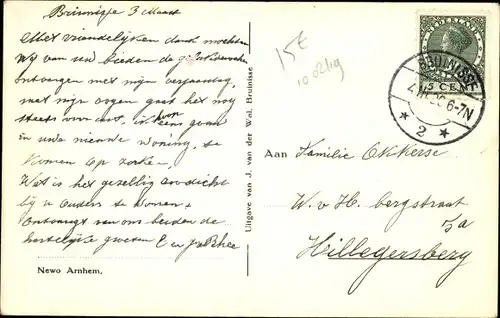 Bruinisse 3 Maart
Met vriendelijken dank mochten
Wij van uw beiden de gelukwenschen
ontvangen met mijn verjaardag,
met mijn oogen gaat het nog
steeds voor uit, ik hoop eens gauw
in uwe nieuwe woning, te
komen op zoeken,
Wat is het gezellig zoo dicht
bij u Ouders te wonen
Ontvangt van ons beiden de
hartelijke groeten
Newo Arnhem.
Uitgave van J. van der Wal, Bruinisse
15€
1002119
NEDERLAND
5 CENT
BRUINISSE
6-7N
* 2 *
Aan Familie Okkerse
W. v. H. bergstraat
7a
Hillegersberg